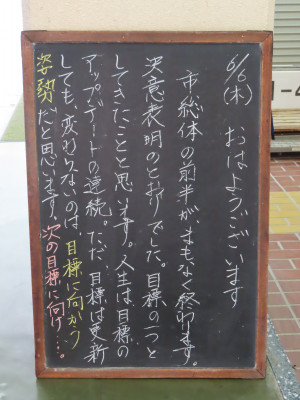 6/6(木) おはようございます
市総体の前半が、まもなく終わります。
決意表明のとおりでした。目標の一つと
してきたことと思います。人生は、目標の
アップデートの連続。ただ、目標は更新
しても、変わらないのは、目標に向かう
姿勢だと思います。次の目標に向け…。